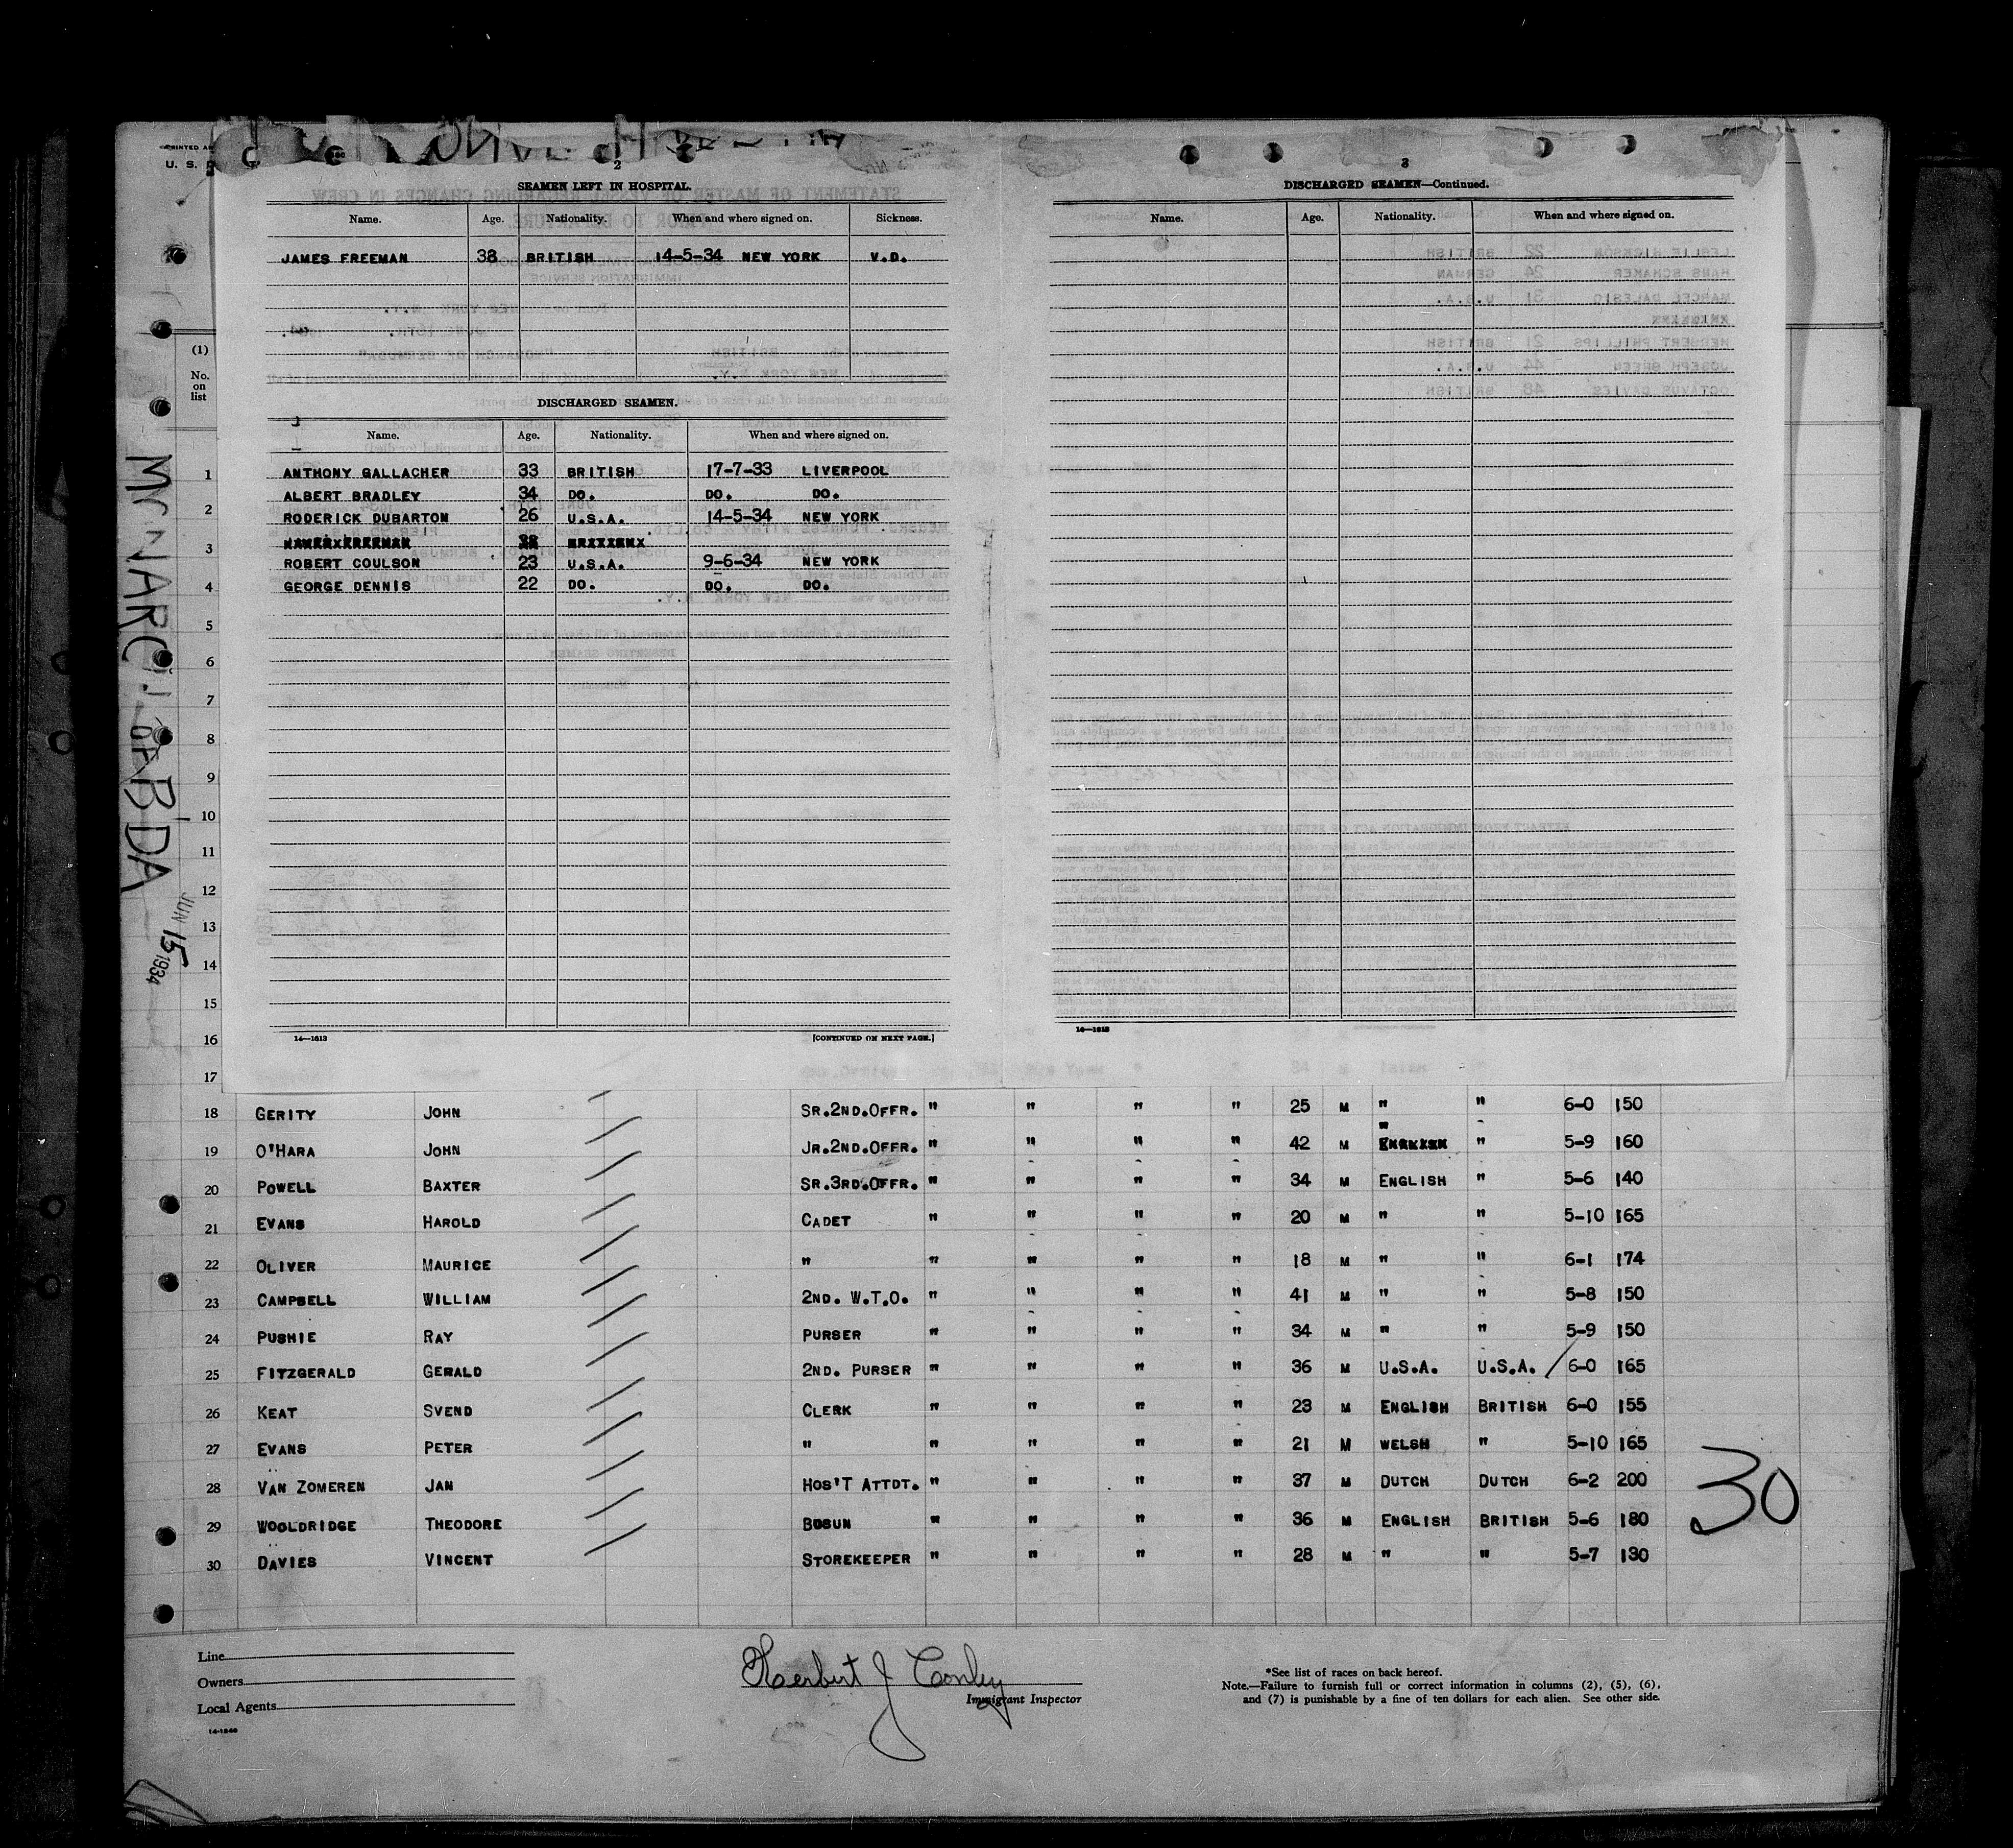 PRINTED
U. S.
2
SEAMEN LEFT IN HOSPITAL.
Name. Age. Nationality. When and where signed on. Sickness.
JAMES FREEMAN 38 BRITISH 14-5-34 NEW YORK V.D.
DISCHARGED SEAMEN.
Name. Age. Nationality. When and where signed on.
ANTHONY GALLACHER 33 BRITISH 17-7-33 LIVERPOOL
ALBERT BRADLEY 34 DO. DO. DO.
RODERICK DUBARTON 26 U.S.A. 14-5-34 NEW YORK
JAMES FREEMAN 38 BRITISH
ROBERT COULSON 23 U.S.A. 9-6-34 NEW YORK
GEORGE DENNIS 22 DO. DO. DO.
14—1613 [CONTINUED ON NEXT PAGE.]
3
DISCHARGED SEAMEN—Continued.
Name. Age. Nationality. When and where signed on.
14—1613
(1)
No.
on
list
1
2
3
4
5
6
7
8
9
10
11
12
13
14
15
16
17
MONARCH OF B'DA
JUN 15 1934
18 GERITY JOHN SR.2ND.OFFR. " " " " 25 M " " 6-0 150
19 O'HARA JOHN JR.2ND.OFFR. " " " " 42 M " " 5-9 160
20 POWELL BAXTER SR.3RD.OFFR. " " " " 34 M ENGLISH " 5-6 140
21 EVANS HAROLD CADET " " " " 20 M " " 5-10 165
22 OLIVER MAURICE " " " " " 18 M " " 6-1 174
23 CAMPBELL WILLIAM 2ND. W.T.O. " " " " 41 M " " 5-8 150
24 PUSHIE RAY PURSER " " " " 34 M " " 5-9 150
25 FITZGERALD GERALD 2ND. PURSER " " " " 36 M U.S.A. U.S.A. 6-0 165
26 KEAT SVEND CLERK " " " " 23 M ENGLISH BRITISH 6-0 155
27 EVANS PETER " " " " " 21 M WELSH " 5-10 165
28 VAN ZOMEREN JAN HOS'T ATTDT. " " " " 37 M DUTCH DUTCH 6-2 200
29 WOOLDRIDGE THEODORE BOSUN " " " " 36 M ENGLISH BRITISH 5-6 180
30 DAVIES VINCENT STOREKEEPER " " " " 28 M " " 5-7 130
30
Line
Owners
Local Agents
14-1240
Herbert J Conley
Immigrant Inspector
*See list of races on back hereof.
Note.—Failure to furnish full or correct information in columns (2), (5), (6),
and (7) is punishable by a fine of ten dollars for each alien. See other side.